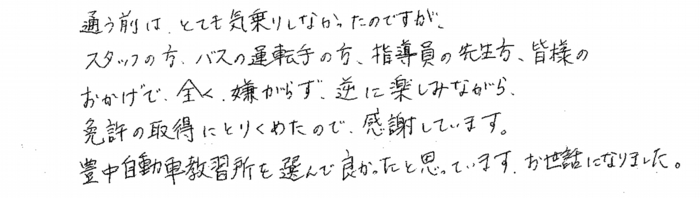 通う前は、とても気乗りしなかったのですが、
スタッフの方、バスの運転手の方、指導員の先生方、皆様の
おかげで、全く、嫌がらず、逆に楽しみながら、
免許の取得にとりくめたので、感謝しています。
豊中自動車教習所を選んで良かったと思っています。お世話になりました。